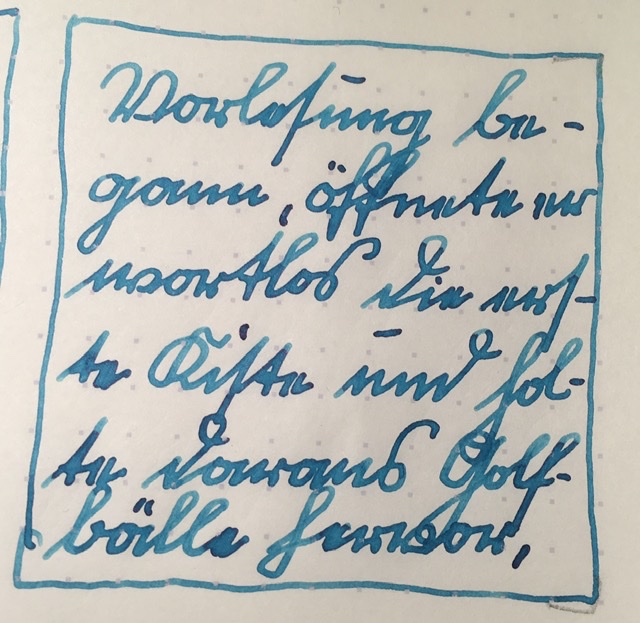 Vorlesung be-
gann, öffnete er
wortlos die ers-
te Kiste und hol-
te daraus Golf-
bälle hervor,